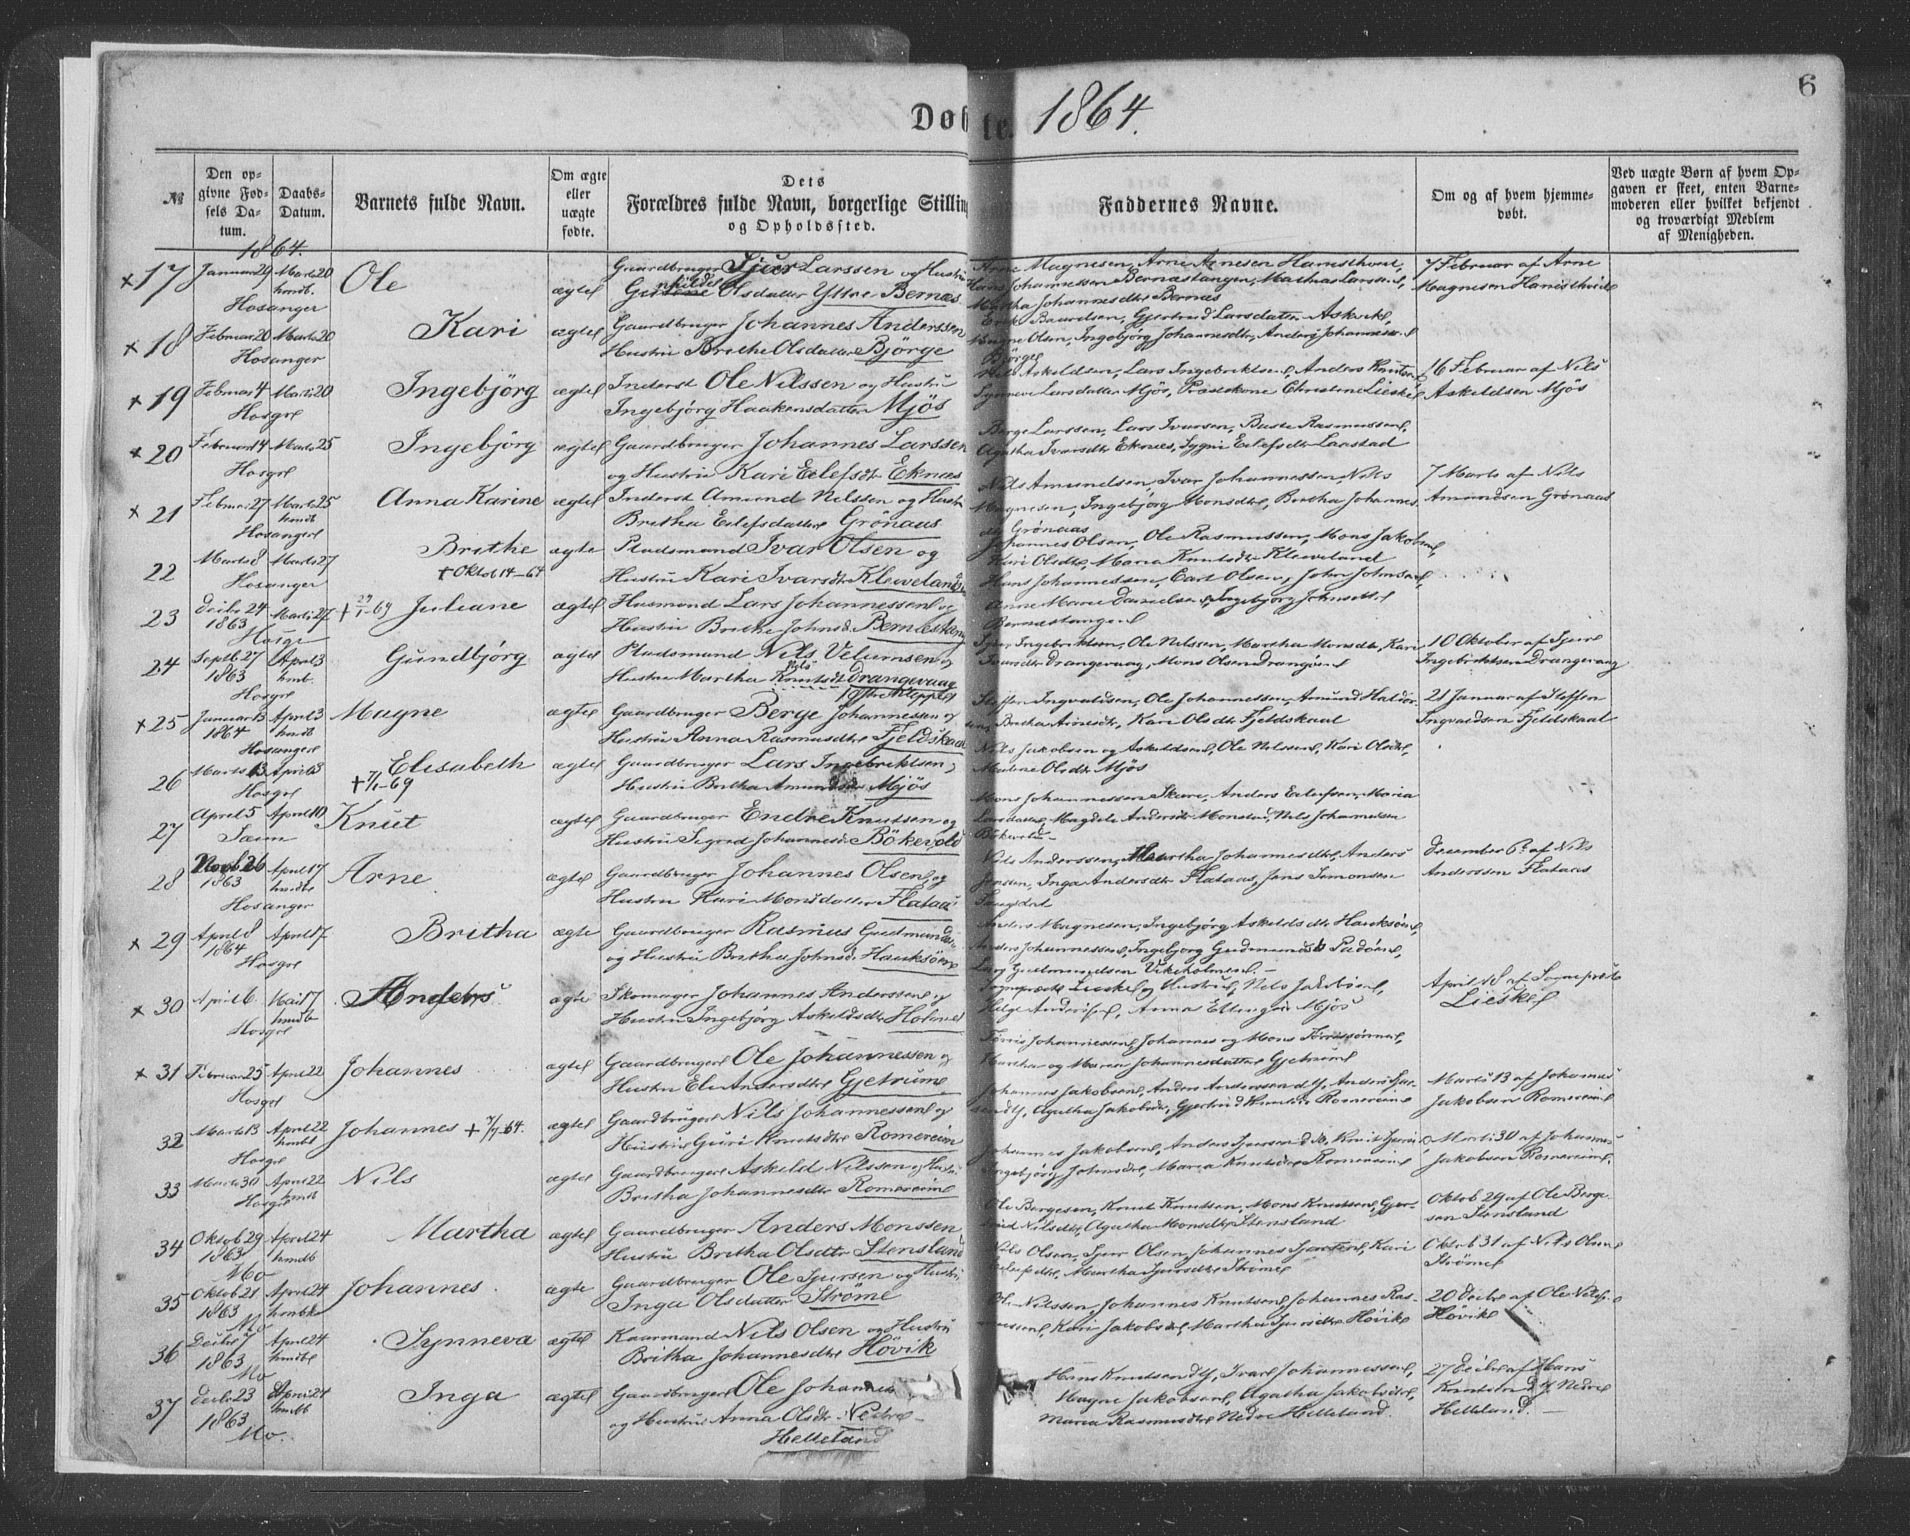 6
Døbte. 1864.
№
Den opgivne Fødsels Datum.
Daabs-Datum.
Barnets fulde Navn.
Om ægte eller uægte fødte.
Dets Forældres fulde Navn, borgerlige Stilling og Opholdssted.
Faddernes Navne.
Om og af hvem hjemmedøbt.
Ved uægte Børn af hvem Opgaven er skeet, enten Barnemoderen eller hvilket bekjendt og troværdigt Medlem af Menigheden.
1864.
x 17 Januar 29 Marts 20 hmdb. Hosanger Ole ægte Gaardbruger Sjur Larssen og Hustru Olsdatter Yttre Bernæs
Arne Magnesen, Arne Arnesen Hamsthveit, Hans Johannessen Bernæstangen, Mathias Larssen, Martha Johannesdtr Bernæs
7 Februar af Arne Magnesen
x 18 Februar 20 Marts 20 Hosanger Kari ægte Gaardbruger Johannes Anderssen Hustru Brithe Olsdatter Bjørge
Erik Baardsen, Gjertrud Larsdatter Askvik, Magne Olsen, Ingebjørg Johannesdtr, Anders Johannessen Bjørge
x 19 Februar 4 Marts 20 Hosgr Ingebjörg ægte Inderst Ole Nilssen og Hustru Ingebjørg Haakensdatter Mjös
Nils Askeldsen, Lars Ingebrigtsen, Anders Knutsen, Synneve Larsdatter Mjøs, Christine Lieskel
16 Februar af Nils Askeldsen Mjøs
x 20 Februar 4 Marts 25 Hosgr Ingebjörg ægte Gaardbruger Johannes Larssen og Hustru Kari Eilefsdtr Eknæs
Berge Larssen, Lars Ivarsen, Rasmussen, Agatha Ivarsdtr Eknæs, Eilefsdtr Laastad
x 21 Februar 27 Marts 25 hmdb Hosanger Anna Karine ægte Inderst Amund Nilssen og Hustru Britha Eilefsdatter Grönaas
Nils Amundsen, Ivar Johannessen, Nils Magnesen, Ingebjørg Monsdtr, Britha Johannesdtr Grønaas
7 Marts af Nils Amundsen Grønaas
22 Marts 8 Marts 27 Hosanger Brithe † Oktob 14-64 ægte Pladsmand Ivar Olsen og Hustru Kari Ivarsdtr Kleveland
Johannes Olsen, Ole Rasmussen, Mons Jakobsen, Kari Olsdtr, Maria Knutsdtr Kleveland
23 Decbr 24 1863 Marts 27 Juliane ægte Husmand Lars Johannessen og Hustru Brithe Johnsd. Bernestang
Hans Johannessen, Carl Olsen, John Johnsen, Anne Marie Danielsen, Ingebjørg Johnsdtr Bernæstangen
24 Septb 27 1863 April 3 hmb. Hosgr Gundbjörg ægte Pladsmand Nils Velumsen og Hustru Martha Drangevaag
Sjur Ingebriktsen, Ole Nilssen, Martha Monsdtr, Kari Ivarsdtr Drangevaag, Mons Olsen
10 Oktober af Sjur Ingebriktsen Drangevaag
x 25 Januar 13 1864 April 3 hmdb Hosanger Magne ægte Gaardbruger Berge Johannessen og Hustru Anna Rasmusdtr Fjeldskaal
Steffen Ingvaldsen, Ole Johannessen, Amund, Britha Arnesdtr, Kari Olsdtr Fjeldskaal
21 Januar af Steffen Ingvaldsen Fjeldskaal
26 Marts 13 April 3 Hosgr Elisabeth † 7/1-69 ægte Gaardbruger Lars Ingebriktsen, Hustru Britha Amundsdr Mjös
Nils Jakobsen og Askeldsen, Ole Nilssen, Kari Olsdtr, Malene Olsdtr Mjøs
27 April 5 April 10 Sæim Knut ægte Gaardbruger Endre Knutsen og Hustru Sigrid Johannesd. Bökevold
Mons Johannessen Skare, Anders Eilefsen, Maria Larsdatter, Magdele Andersdtr Monstad, Nils Johannessen
28 Novb 26 1863 April 17 hmdb Hosanger Arne ægte Gaardbruger Johannes Olsen og Hustru Kari Monsdatter Flataas
Nils Anderssen, Martha Johannesdtr, Anders Jensen, Inga Andersdtr Flataas, Jens Simonsen
December 6 af Nils Anderssen Flataas
x 29 April 8 1864 April 17 Hosgr Britha ægte Gaardbruger Rasmus Gudmunds. og Hustru Britha Johnsd. Hauksöen
Anders Magnesen, Ingebjørg Askeldsdtr Hauksøen, Anders Johannessen, Ingebjørg Gudmunds, Lars Gudmundsen Vikeholmen.
x 30 April 6. Mai 17 hmdb Hosgr Anders ægte Skomager Johannes Anderssen og Hustru Ingebjørg Askeldsdtr Holme
Sogneprest Lieskel og Hustru, Nils Jakobsen, Helge Anderssen, Anna Mjøs
April 18 af Sogneprest Lieskel
x 31 Februar 25 April 22 Hosgr Johannes ægte Gaardbruger Ole Johannessen og Hustru Eli Andersdtr Gjetrume
Johannessen, Johannes og Mons, Martha og Maren Johannesdatter Gjetrume
32 Marts 13 April 22 hmdb Hosgr Johannes † 7/7-64. ægte Gaardbruger Nils Johannessen og Hustru Guri Knutsdtr Romereim
Johannes Jakobsen, Anders Anderssen d.y., Agatha Jakobsdr, Gjertrud Knutsdr Romereim
Marts 13 af Johannes Jakobsen Romereim
33 Marts 30 April 22 hmdb Hosgr Nils ægte Gaardbruger Askeld Nilssen og Hustru Britha Johannesdtr Romereim
Johannes Jakobsen, Anders Sjursen, Ingebjørg Johnsdtr, Maria Knutsdtr Romereim
Marts 30 af Johannes Jakobsen Romereim.
34 Oktob 29 1863 April 24 hmdb Mo Martha ægte Gaardbruger Anders Monssen Hustru Britha Olsdtr Stensland
Ole Bergesen, Knut Knutsen, Mons Knutsen, Gjertrud Nilsdtr, Agatha Monsdtr Stensland
Oktob 29 af Ole Bergesen Stensland
35 Oktob 21 1863 April 24 hmdb Mo Johannes ægte Gaardbruger Ole Sjursen og Hustru Inga Olsdatter Ströme
Nils Olsen, Sjur Olsen, Johannes, Kari, Martha Sjursdtr Strøme
Oktob 31 af Nils Olsen Strøme
36 Decbr 7 1863 April 24 hmdb Mo Synneva ægte Kaarmand Nils Olsen og Hustru Britha Johannesdtr Hövik
Ole Nilssen, Johannes Knutsen, Johannes Rasmussen, Kari Jakobsd, Martha Sjursdtr Høvik
20 Decbr af Ole Nilssen Høvik
37 Decbr 23 1863 April 24 hmdb Mo. Inga ægte Gaardbruger Ole Johannes og Hustru Anna Olsdtr Nedre Helleland
Hans Knutsen d.y., Ivar Johannessen, Magne Jakobsen, Agatha Jakobsdtr, Maria Rasmusdtr Nedre Helleland
27 Decbr af Hans Knutsen d.y. Nedre Helleland.